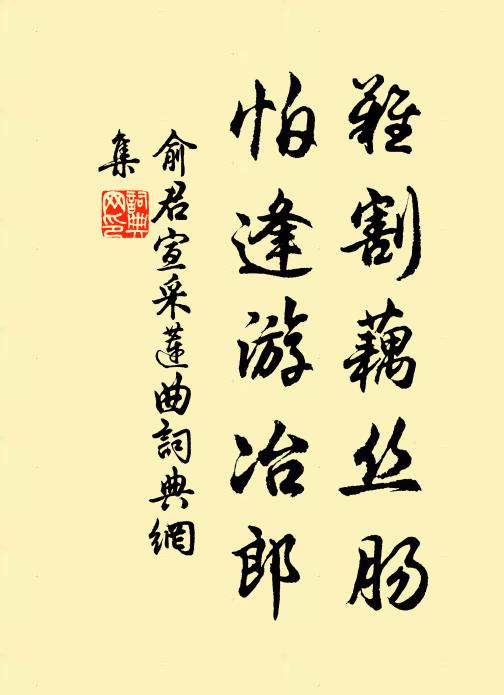 难割藕丝肠
怕逢游冶郎
俞君宣采莲曲詞典網
集
詞典
网印